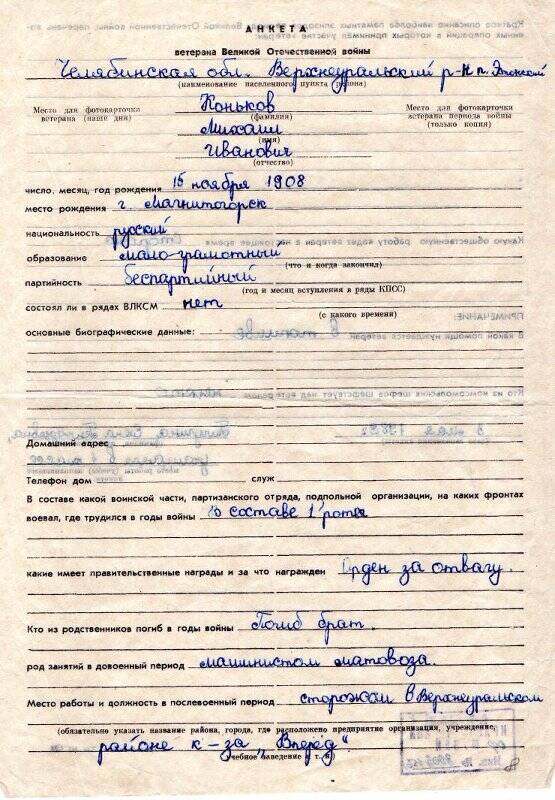 АНКЕТА
ветерана Великой Отечественной войны
Челябинская обл. Верхнеуральский р-н п.
(наименование населенного пункта района)
Место для фотокарточки
ветерана (наши дни)
Коньков
(фамилия)
Михаил
(имя)
Иванович
(отчество)
Место для фотокарточки
ветерана периода войны
(только копия)
число, месяц, год рождения 15 ноября 1908
место рождения г. Магнитогорск
национальность русский
образование мало-грамотный
(что и когда закончил)
партийность беспартийный
(год и месяц вступления в ряды КПСС)
состоял ли в рядах ВЛКСМ нет
(с какого времени)
основные биографические данные:
Домашний адрес
Телефон дом служ
В составе какой воинской части, партизанского отряда, подпольной организации, на каких фронтах
воевал, где трудился в годы войны В составе 1 роты
какие имеет правительственные награды и за что награжден Орден за отвагу.
Кто из родственников погиб в годы войны Погиб брат.
род занятий в довоенный период машинистом мотовоза.
Место работы и должность в послевоенный период сторожам в Верхнеуральском
(обязательно указать название района, города, где расположено предприятие организация, учреждение,
районе к-за „Вперёд"
учебное заведение и т. п.)